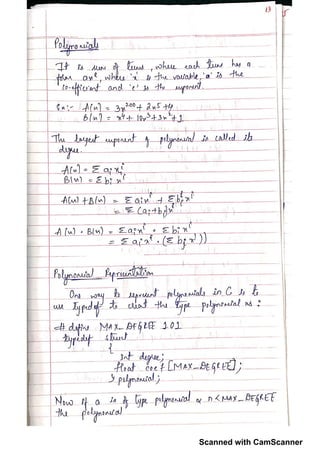 13
5
Polynomials
It is sum of terms, where each term has a
form axᵉ, where 'x' is the variable, 'a' is the
co-efficient and 'e' is the exponent.
Ex:- A(x) = 3x²⁰⁰ + 2x5 + 4
B(x) = x⁴ + 10x³ + 3x² + 1
The largest exponent of polynomial is called its
degree.
A(x) = Σ aᵢxⁱ
B(x) = Σ bᵢ xⁱ
A(x) + B(x) = Σ aᵢxⁱ + Σ bᵢxⁱ
= Σ (aᵢ + bᵢ)xⁱ
A(x) · B(x) = Σ aᵢxⁱ · Σ bᵢxⁱ
= Σ aᵢxⁱ · (Σ bⱼxʲ))
Polynomial Representation
One way to represent polynomials in C is to
use typedef to creat the type polynomial as :
# define MAX_DEGREE 101
typedef struct
{
int degree;
float coef [MAX_DEGREE];
} polynomial;
Now if a is of type polynomial & n < MAX_DEGREE
the polynomial
Scanned with CamScanner